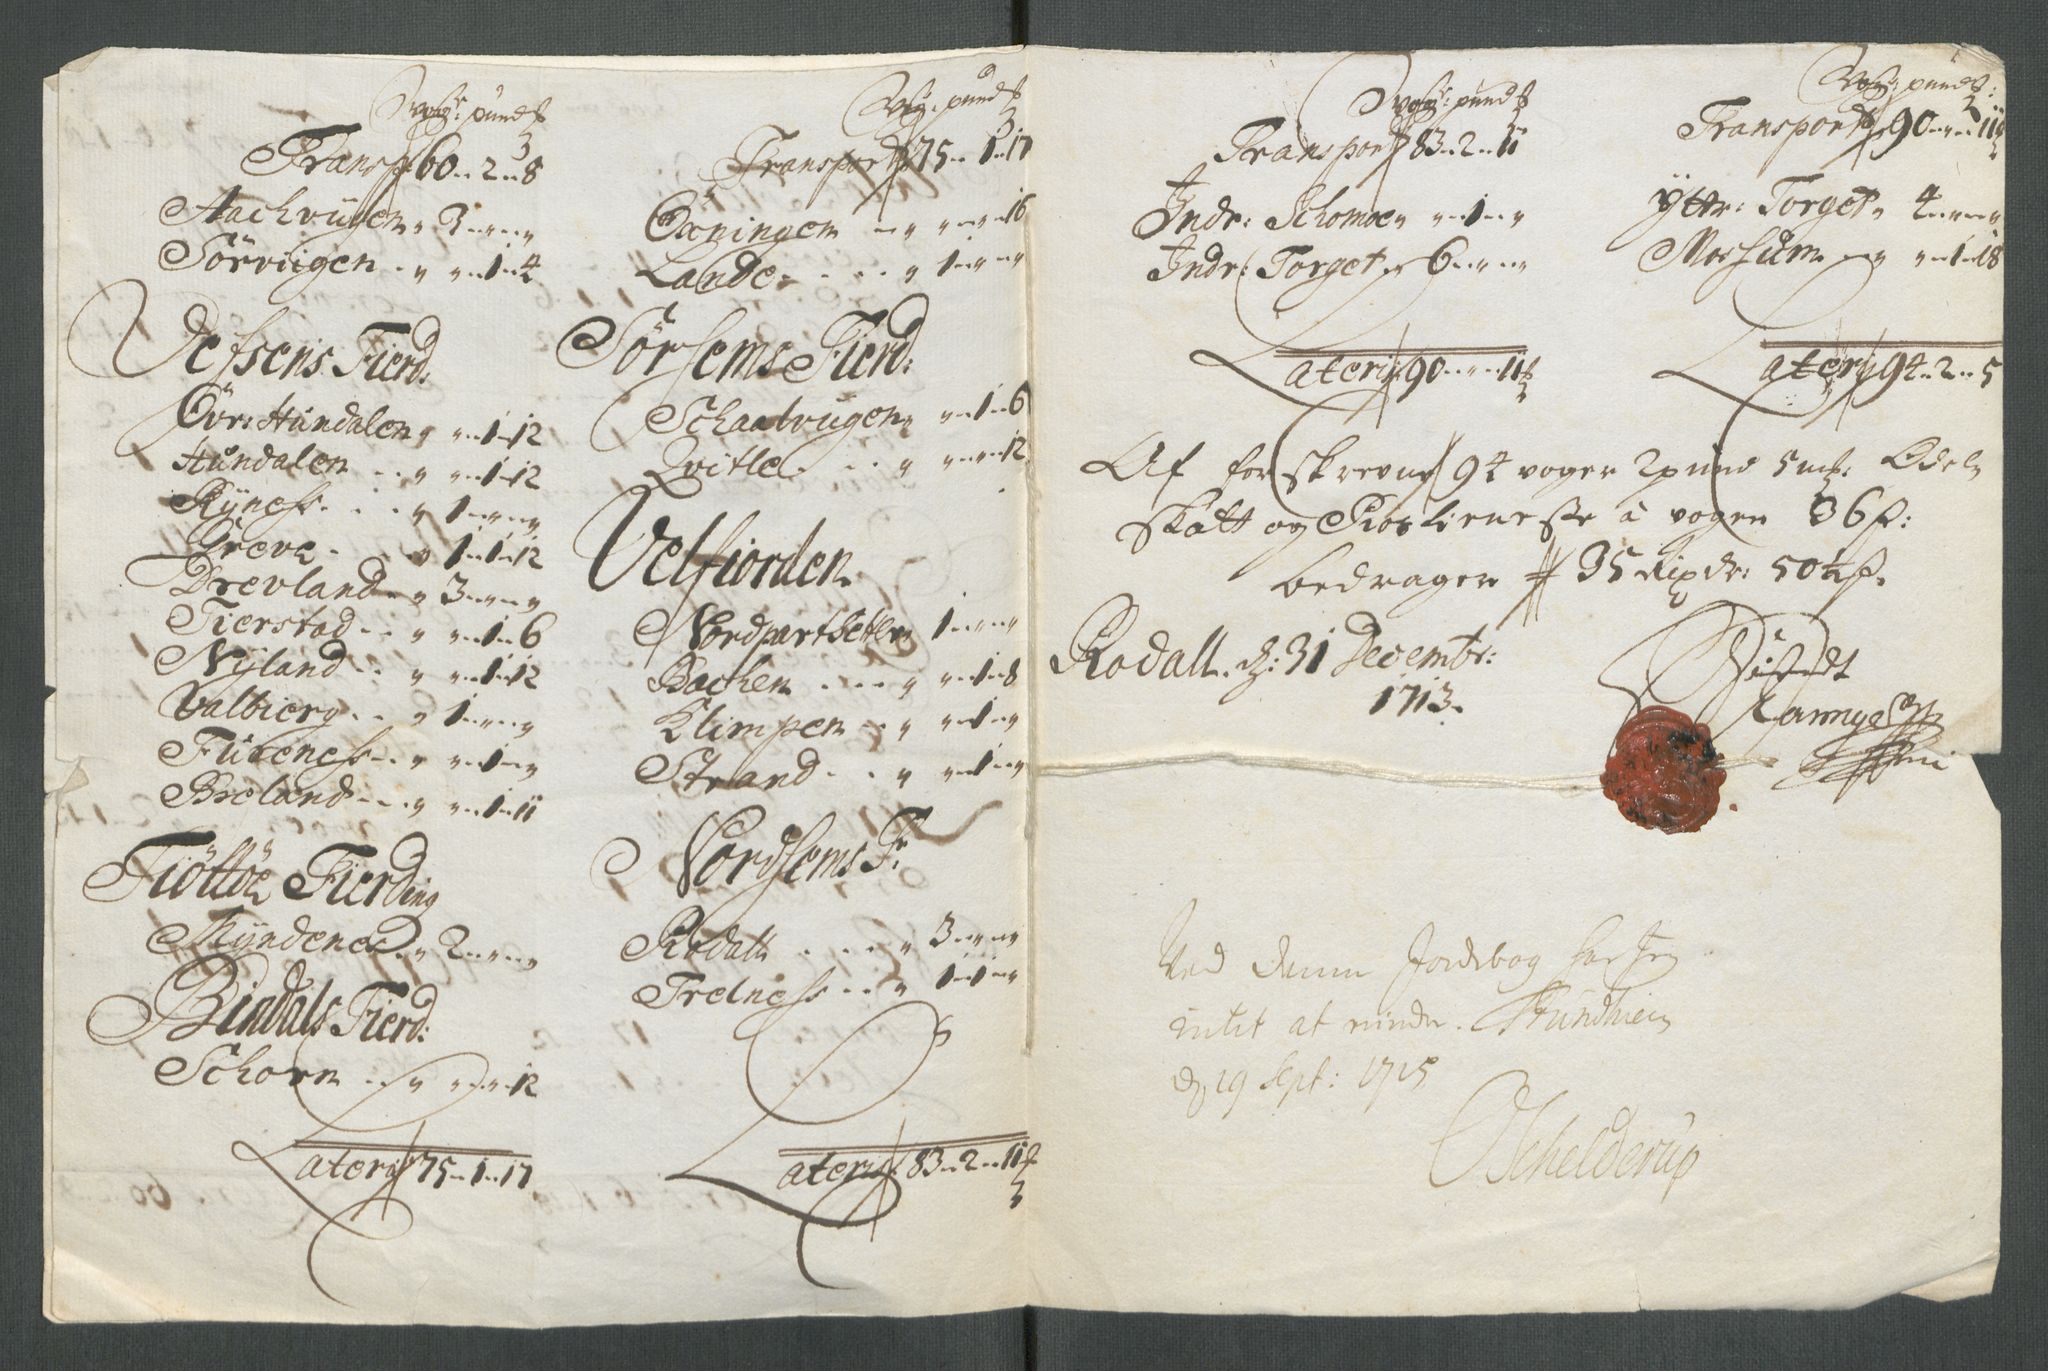 Voger: pund
Transp 60 .. 2 .. 8
Aachvigen „ 3 .. „ .. „
Sörviigen .. „ „ .. 1 .. 4
Vefsens Fierd.
Övr: Hundalen „ „ .. 1 .. 12
Hundalen .. „ „ .. 1 .. 12
Rÿness .. „ 1 .. „ .. „
Greve .. „ 1 .. 1 .. 12
Drevland .. „ 3 .. „ .. „
Fierstad .. „ „ .. 1 .. 6
Nÿland .. „ „ .. 1 .. 12
Valbierg .. „ 1 .. „ .. „
Fureness .. „ „ .. 1 .. „
Breland .. „ „ .. 1 .. 11
Tiöttöe Fierding
Mÿndenes .. „ 2 .. „ .. „
Bindals Fierd:
Schorn .. „ „ .. „ .. 12
Lateris 75 .. 1 .. 17
Vog: pund
Transport 75 .. 1 .. 17
Öxningen .. „ „ .. „ .. 16
Lande .. „ 1 .. „ .. „
Sörsems Fierd:
Schaalvigen „ „ .. 1 .. 6
Qvitle .. „ „ .. „ .. 12
Velfiorden
Nordpartsetter 1 .. „ .. „
Bachen .. „ „ .. 1 .. 8
Klimpen .. „ „ .. 1 .. „
Strand .. „ „ .. 1 .. „
Nordsems F:
Rodall .. „ 3 .. „ .. „
Trelness .. „ 1 .. 1 .. „
Lateris 83 .. 2 .. 11
Vogr: pund
Transport 83 .. 2 .. 11
Indr: Schomoe „ „ .. 1 .. „
Indr: Torget „ 6 .. „ .. „
Lateris 90 .. „ .. 11
Vog: pund:
Transport 90 .. „ .. 11
Ÿttr: Torget „ 4 .. „ .. „
Mossum .. „ „ .. 1 .. 18
Lateris 94 .. 2 .. 5
Af forskrevne 94 voger 2 pund 5 mk: Odels
skatt og Rostieneste â vogen 36 s:
bedrager 35 Rixdr: 50 s.
Rodall d: 31 Decembr:
1713.
Ved denne Jordebog har Jeg
intet at minde. Trundhiem
d 19 Sept: 1715
Schelderup